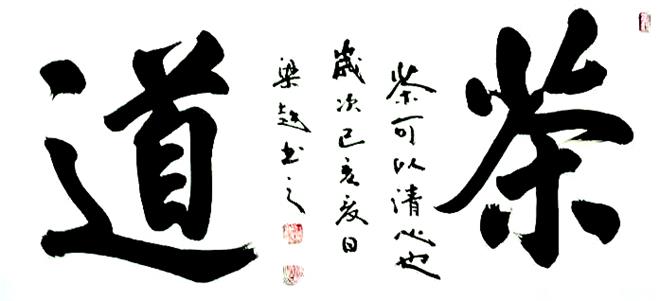 茶
茶可以清心也
歲次己亥夏日
梁超书之
道